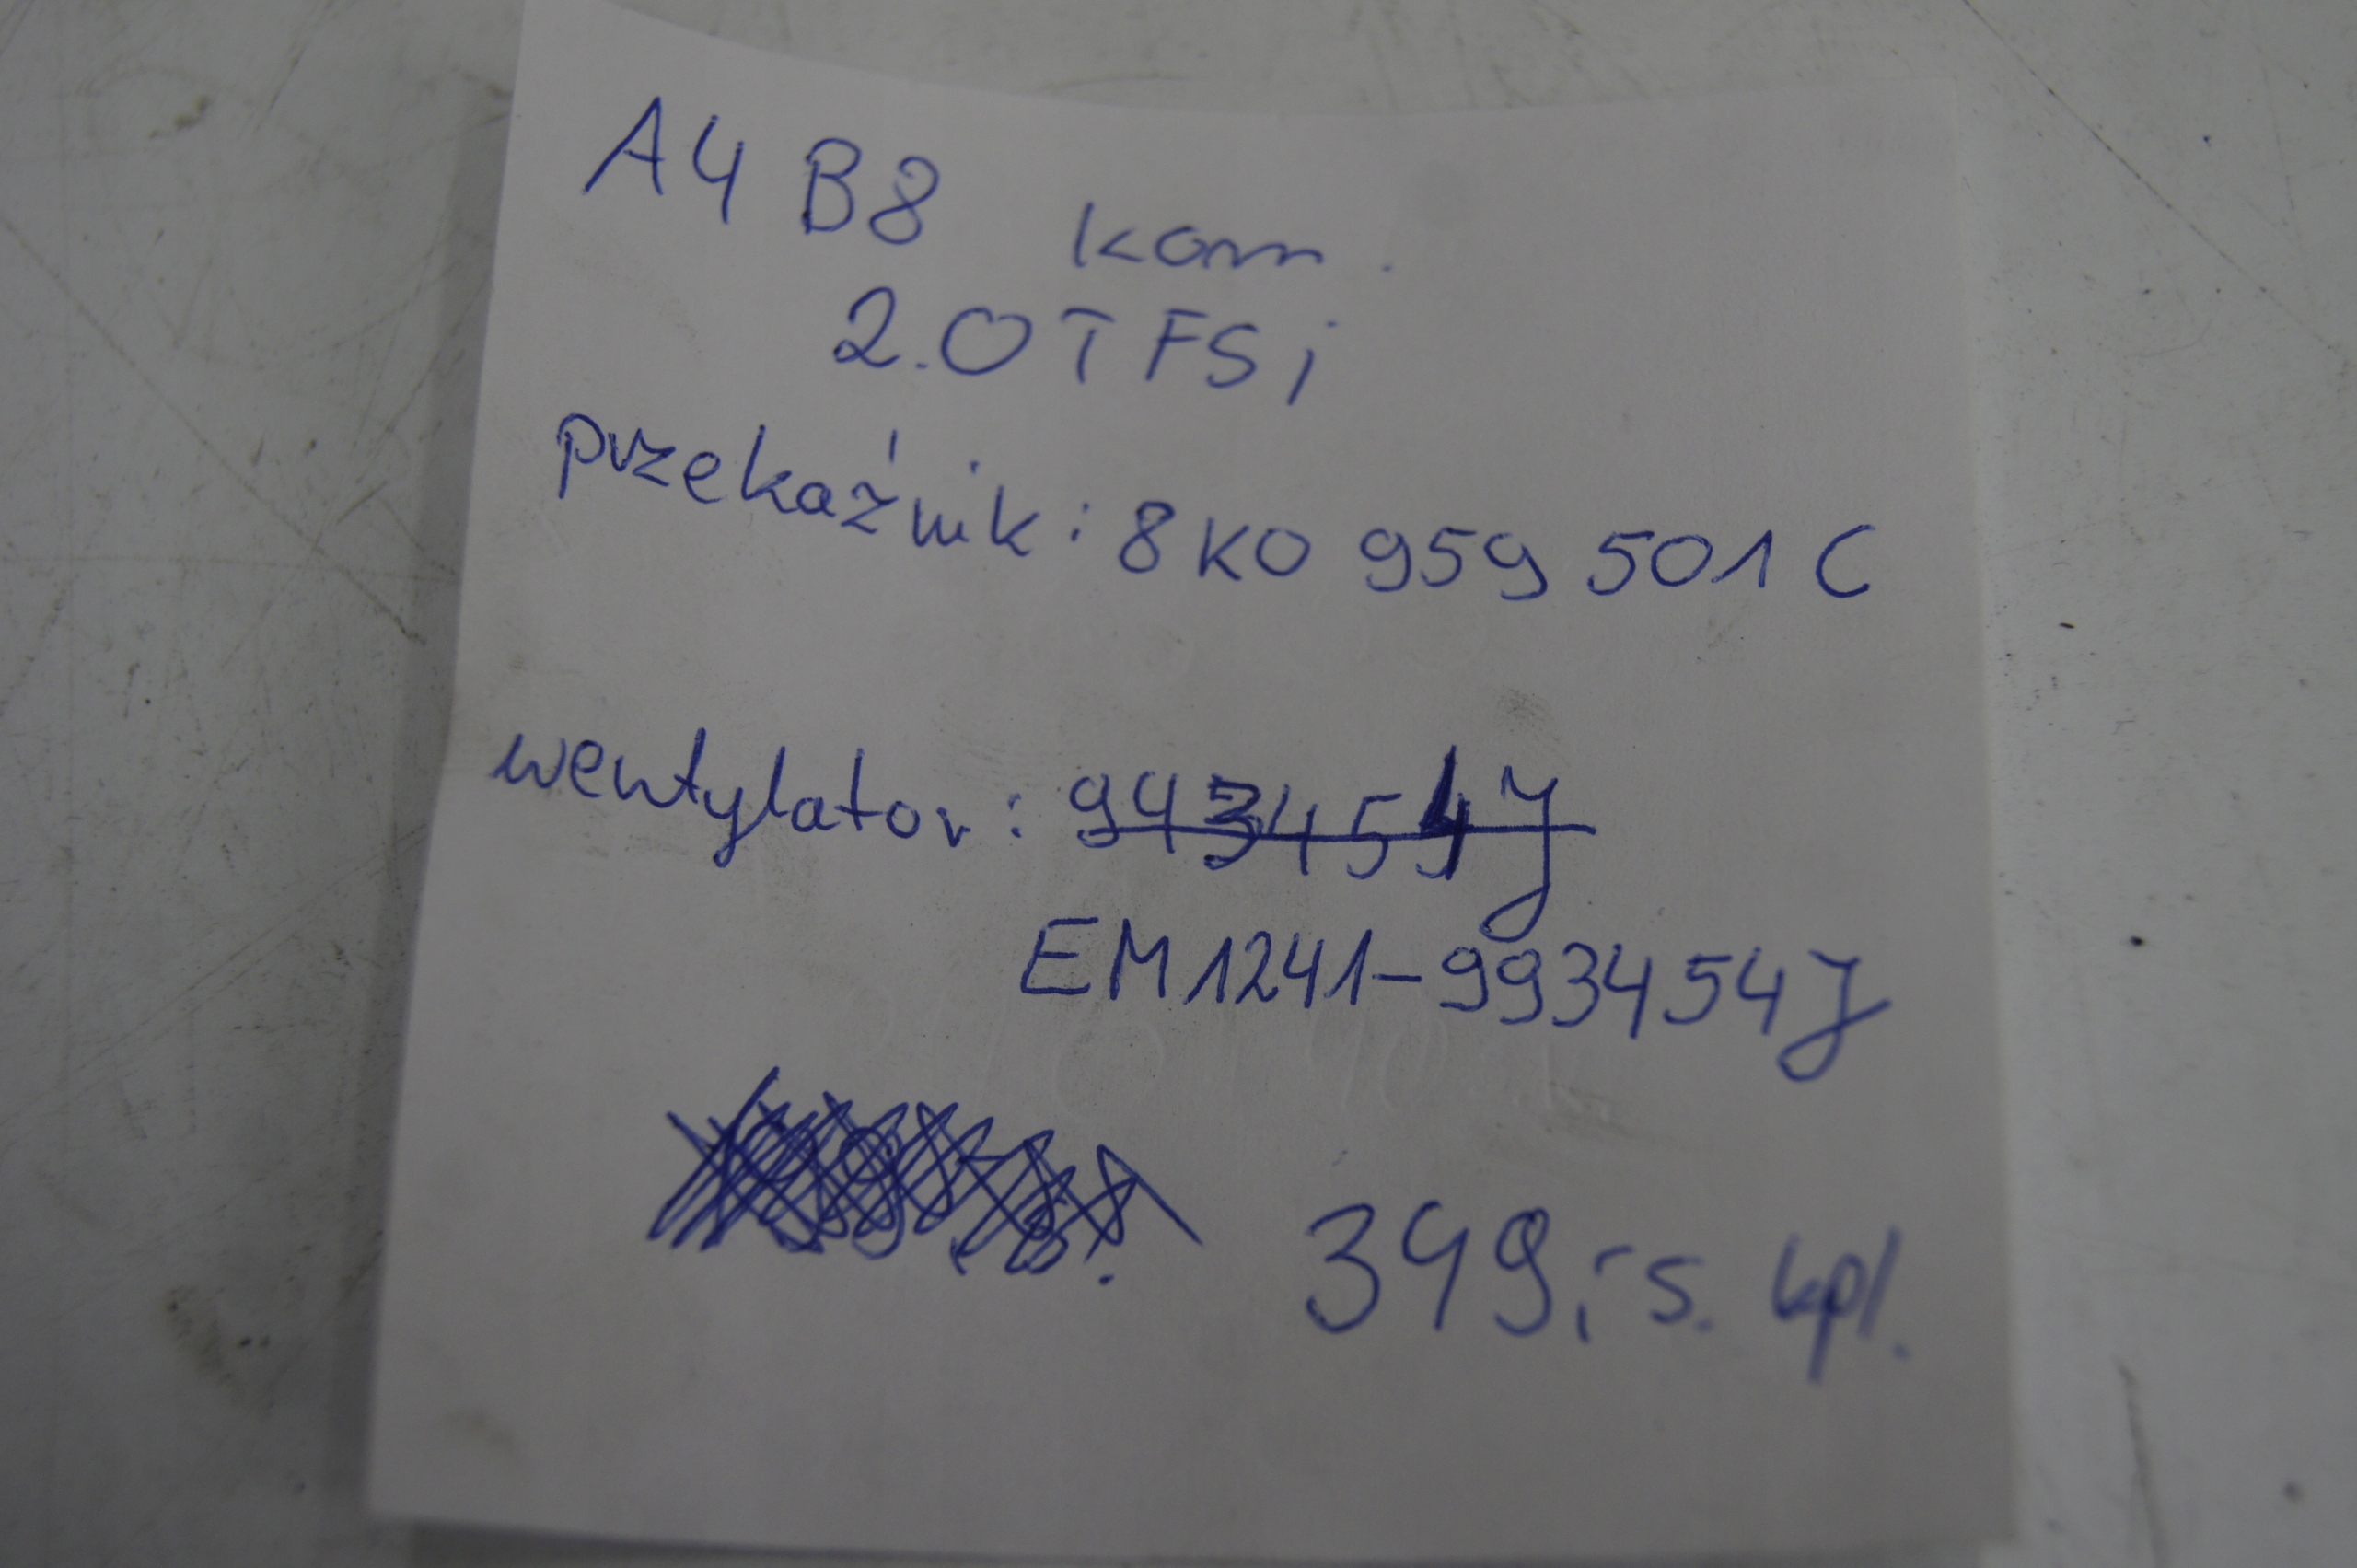 A4 B8 kom.
2.0 TFSi
przekaźnik: 8K0 959 501 C
wentylator:
EM1241-9934545J
349,- s. kpl.